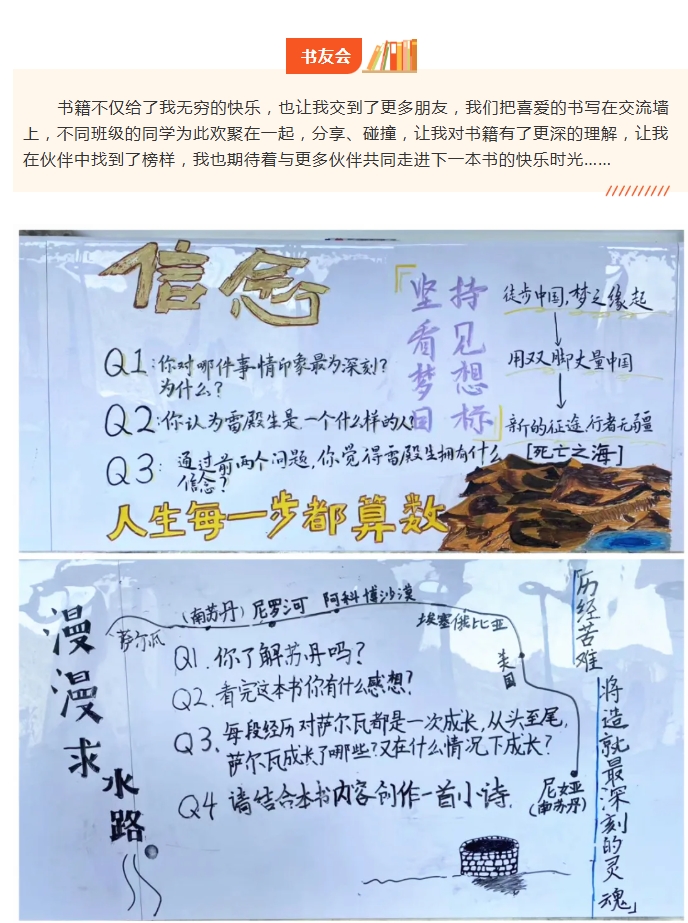 书友会
书籍不仅给了我无穷的快乐，也让我交到了更多朋友，我们把喜爱的书写在交流墙
上，不同班级的同学为此欢聚在一起，分享、碰撞，让我对书籍有了更深的理解，让我
在伙伴中找到了榜样，我也期待着与更多伙伴共同走进下一本书的快乐时光……
信念
「坚持
看见
梦想
目标」
徒步中国，梦之缘起
用双脚丈量中国
新的征途，行者无疆
[死亡之海]
Q1：你对哪件事情印象最为深刻？
为什么？
Q2：你认为雷殿生是一个什么样的人？
Q3：通过前两个问题，你觉得雷殿生拥有什么
信念？
人生每一步都算数
漫漫求水路
萨尔瓦
(南苏丹)
尼罗河
阿科博沙漠
埃塞俄比亚
美国
尼娅
(南苏丹)
Q1.你了解苏丹吗？
Q2.看完这本书你有什么感想？
Q3.每段经历对萨尔瓦都是一次成长，从头至尾，
萨尔瓦成长了哪些？又在什么情况下成长？
Q4 请结合本书内容创作一首小诗.
「历经苦难
将造就最深刻的灵魂」